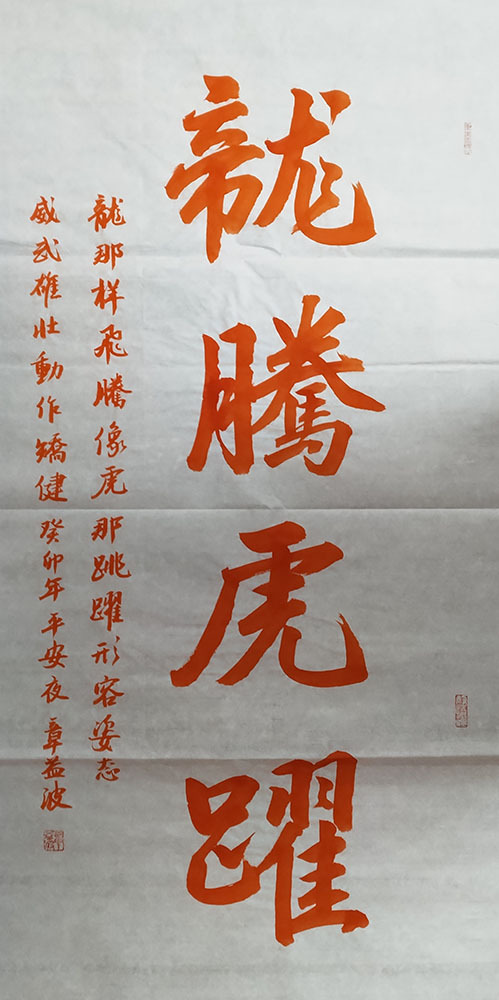 龍騰虎躍
龍那样飛騰像虎那跳躍形容姿态
威武雄壮動作矯健癸卯年平安夜章益波